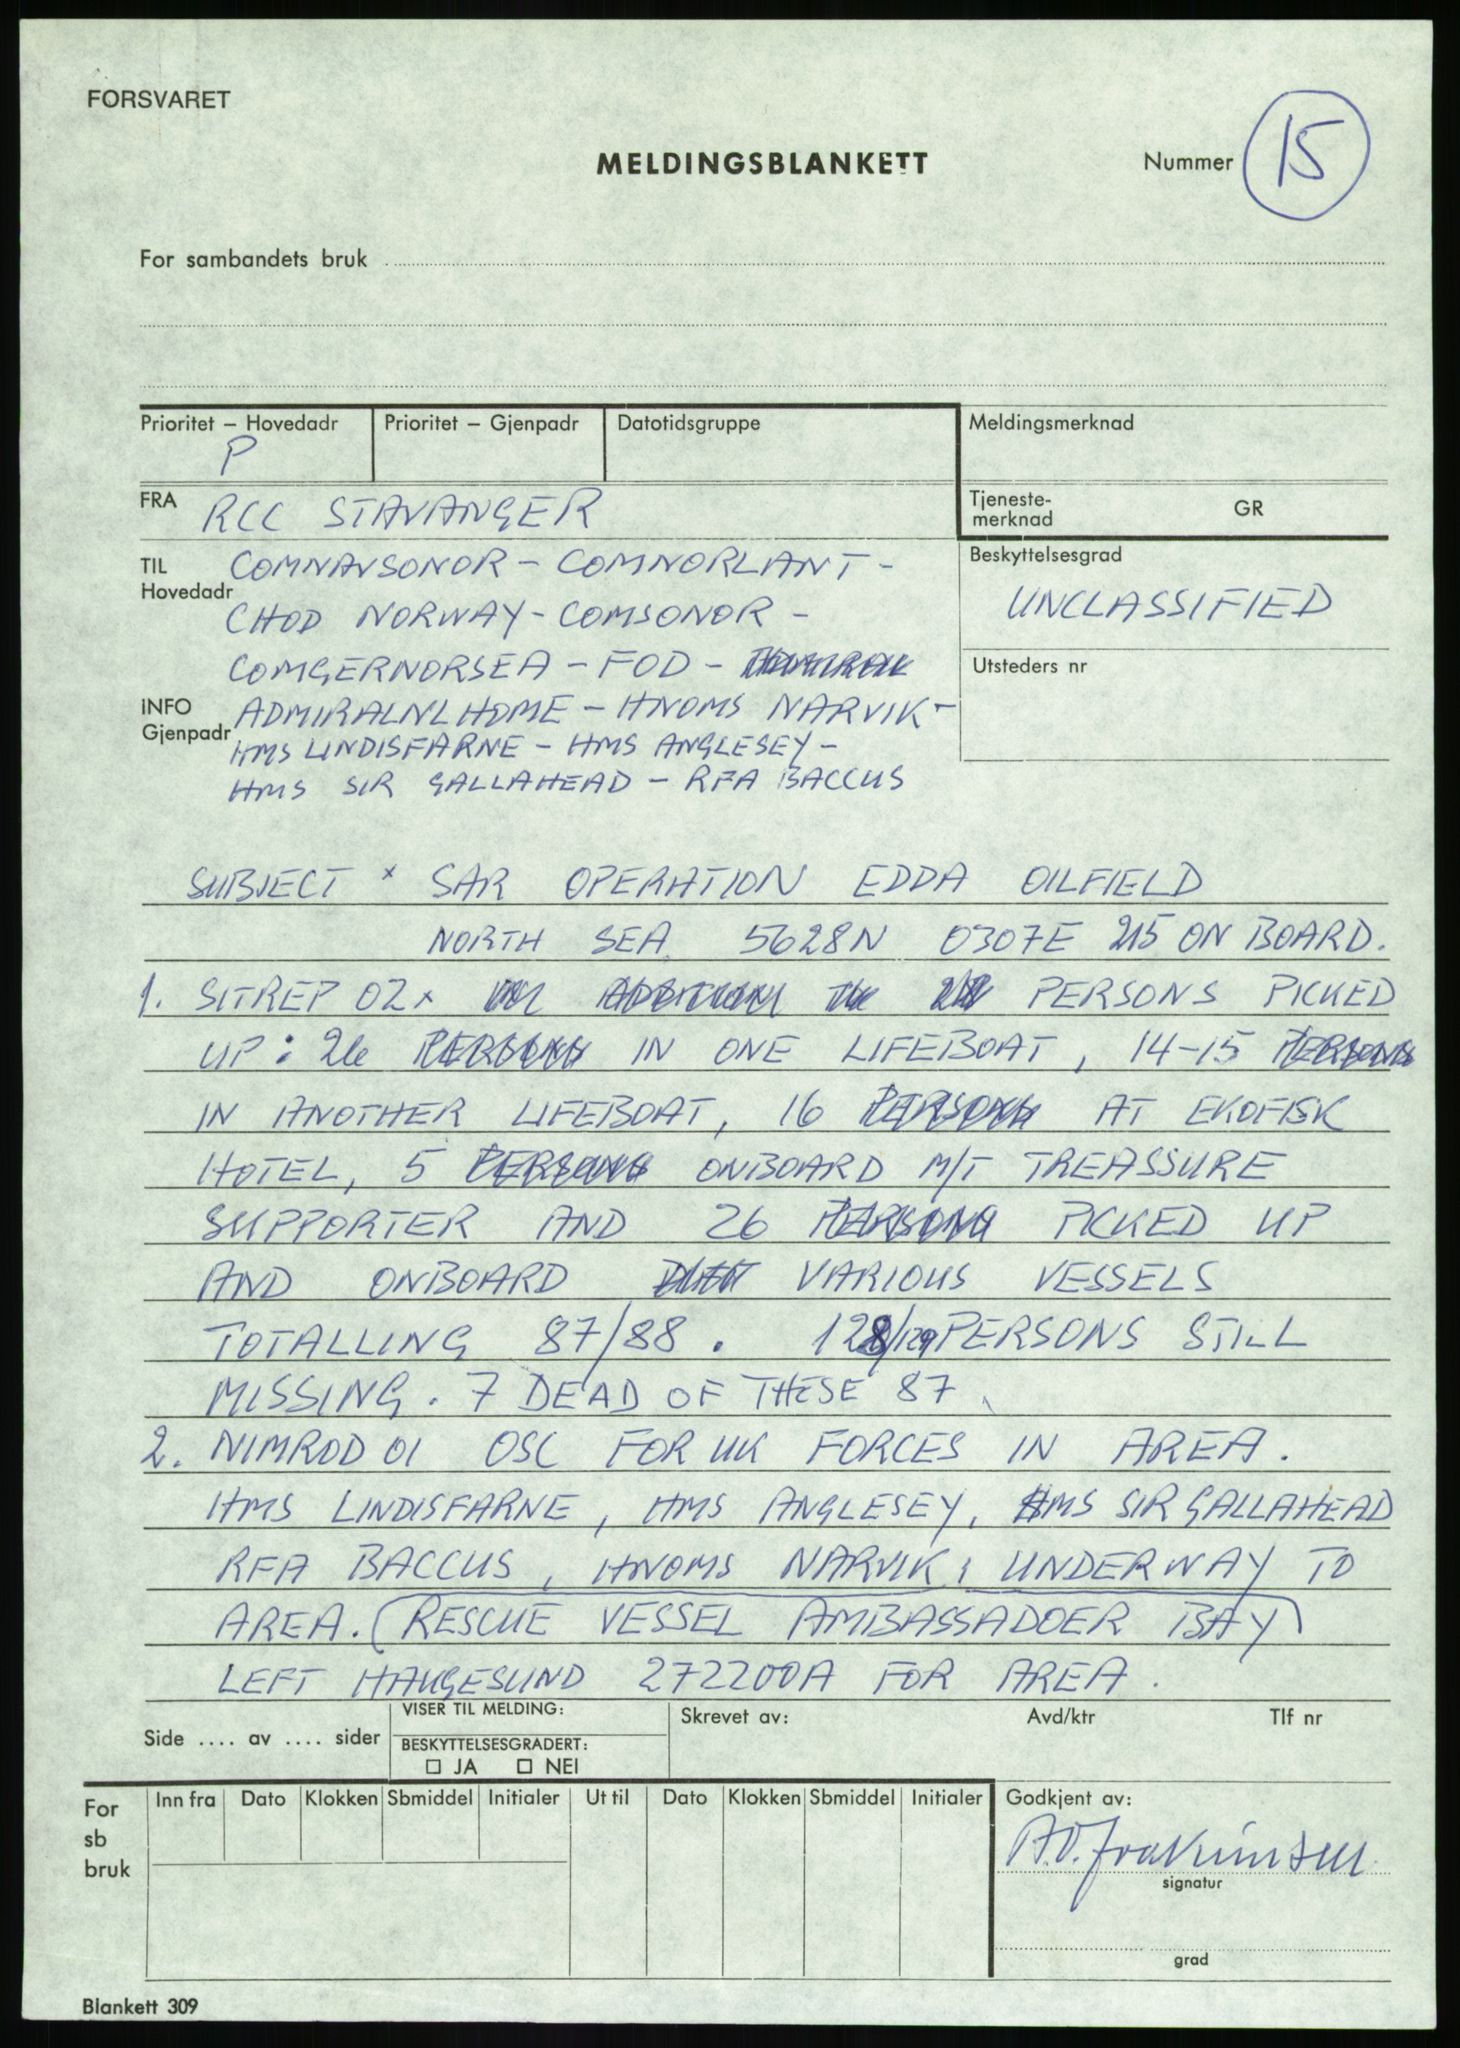 FORSVARET
MELDINGSBLANKETT
Nummer 15
For sambandets bruk
Prioritet – Hovedadr Prioritet – Gjenpadr Datotidsgruppe Meldingsmerknad
P
FRA RCC STAVANGER
Tjeneste-
merknad GR
TIL
Hovedadr
COMNAVSONOR – COMNORLANT –
CHOD NORWAY – COMSONOR –
COMGERNORSEA – FOD –
Beskyttelsesgrad
UNCLASSIFIED
Utsteders nr
INFO
Gjenpadr
ADMIRALNLHOME – HNOMS NARVIK –
HMS LINDISFARNE – HMS ANGLESEY –
HMS SIR GALLAHEAD – RFA BACCUS
SUBJECT x SAR OPERATION EDDA OILFIELD
NORTH SEA 5628N 0307E 215 ON BOARD.
1. SITREP 02x PERSONS PICKED
UP: 26 PERSONS IN ONE LIFEBOAT, 14-15 PERSONS
IN ANOTHER LIFEBOAT, 16 PERSONS AT EKOFISK
HOTEL, 5 PERSONS ONBOARD M/T TREASSURE
SUPPORTER AND 26 PERSONS PICKED UP
AND ONBOARD VARIOUS VESSELS
TOTALLING 87/88. 128/129 PERSONS STILL
MISSING. 7 DEAD OF THESE 87.
2. NIMROD 01 OSC FOR UK FORCES IN AREA.
HMS LINDISFARNE, HMS ANGLESEY, HMS SIR GALLAHEAD
RFA BACCUS, HNOMS NARVIK; UNDERWAY TO
AREA. (RESCUE VESSEL AMBASSADOER BAY)
LEFT HAUGESUND 272200A FOR AREA.
Side .... av .... sider
VISER TIL MELDING:
BESKYTTELSESGRADERT:
☐ JA ☐ NEI
Skrevet av: Avd/ktr Tlf nr
For
sb
bruk
Inn fra Dato Klokken Sbmiddel Initialer Ut til Dato Klokken Sbmiddel Initialer
Godkjent av:
signatur
grad
Blankett 309